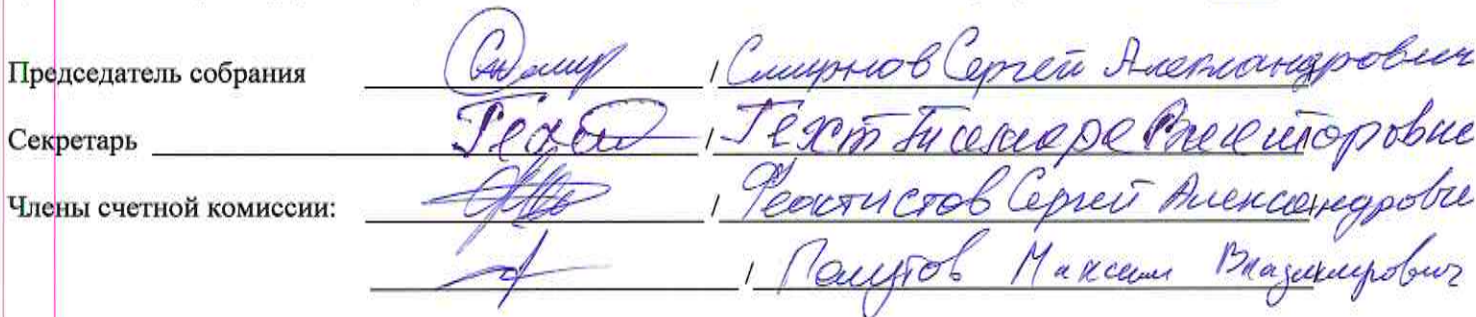 Председатель собрания / Смирнов Сергей Александрович
Секретарь / Гехт Викторовна
Члены счетной комиссии: / Феоктистов Сергей Александрович
/ Максим Владимирович